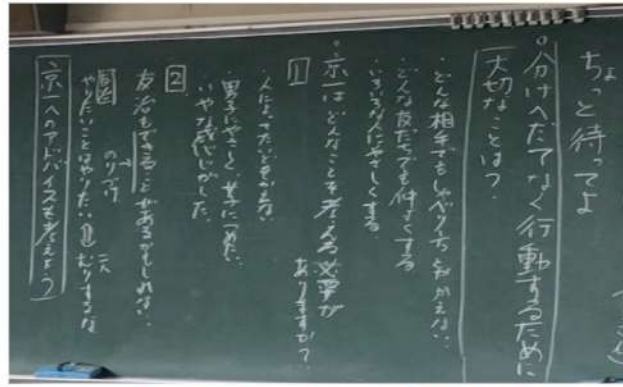 ちょっと待ってよ
。分けへだてなく行動するために
大切なことは?
・どんな相手でもしゃべり方とかかえない。
・どんな友だちでも仲よくする
・いろいろな人にやさしくする。
1
。京一はどんなことを考える必要が
ありますか?
・人によってたいどをかえない
・男子にやさしく、女子につめたい
いやな感じがした。
2
友治もできることがあるかもしれない。
のりつけ
やりたいことはやりたい
むりするな
京一へのアドバイスを考えよう